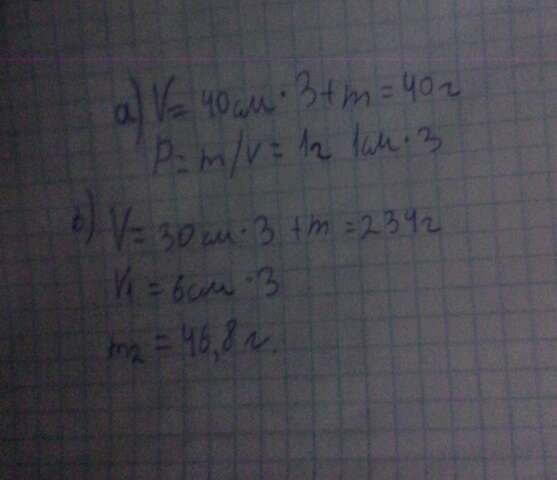 а) V = 40см · 3 + m = 40г
P = m/V = 1г 1см · 3
б) V = 30см · 3 + m = 234г
V1 = 6см · 3
m2 = 46,8г.